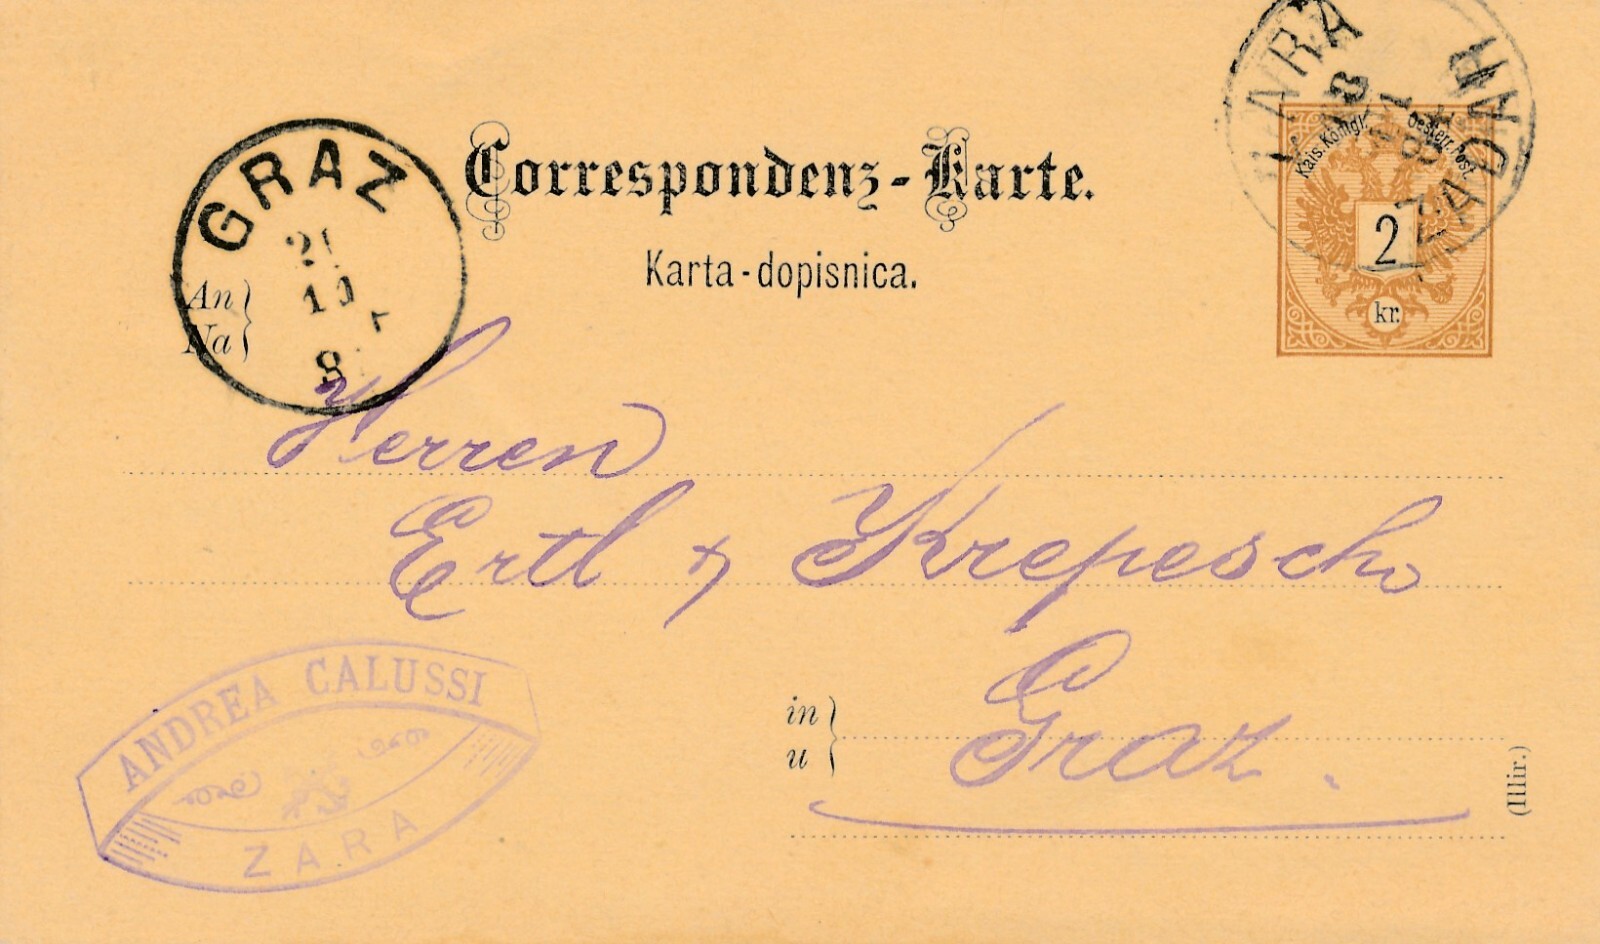 Correspondenz-Karte.
Karta-dopisnica.
Kais. Königl. Oesterr. Post.
2
kr.
ZARA
ZADAR
GRAZ
10
8
An
Na
Herren
Ertl & Krepesch
in
u
Graz.
(Illir.)
ANDREA CALUSSI
ZARA